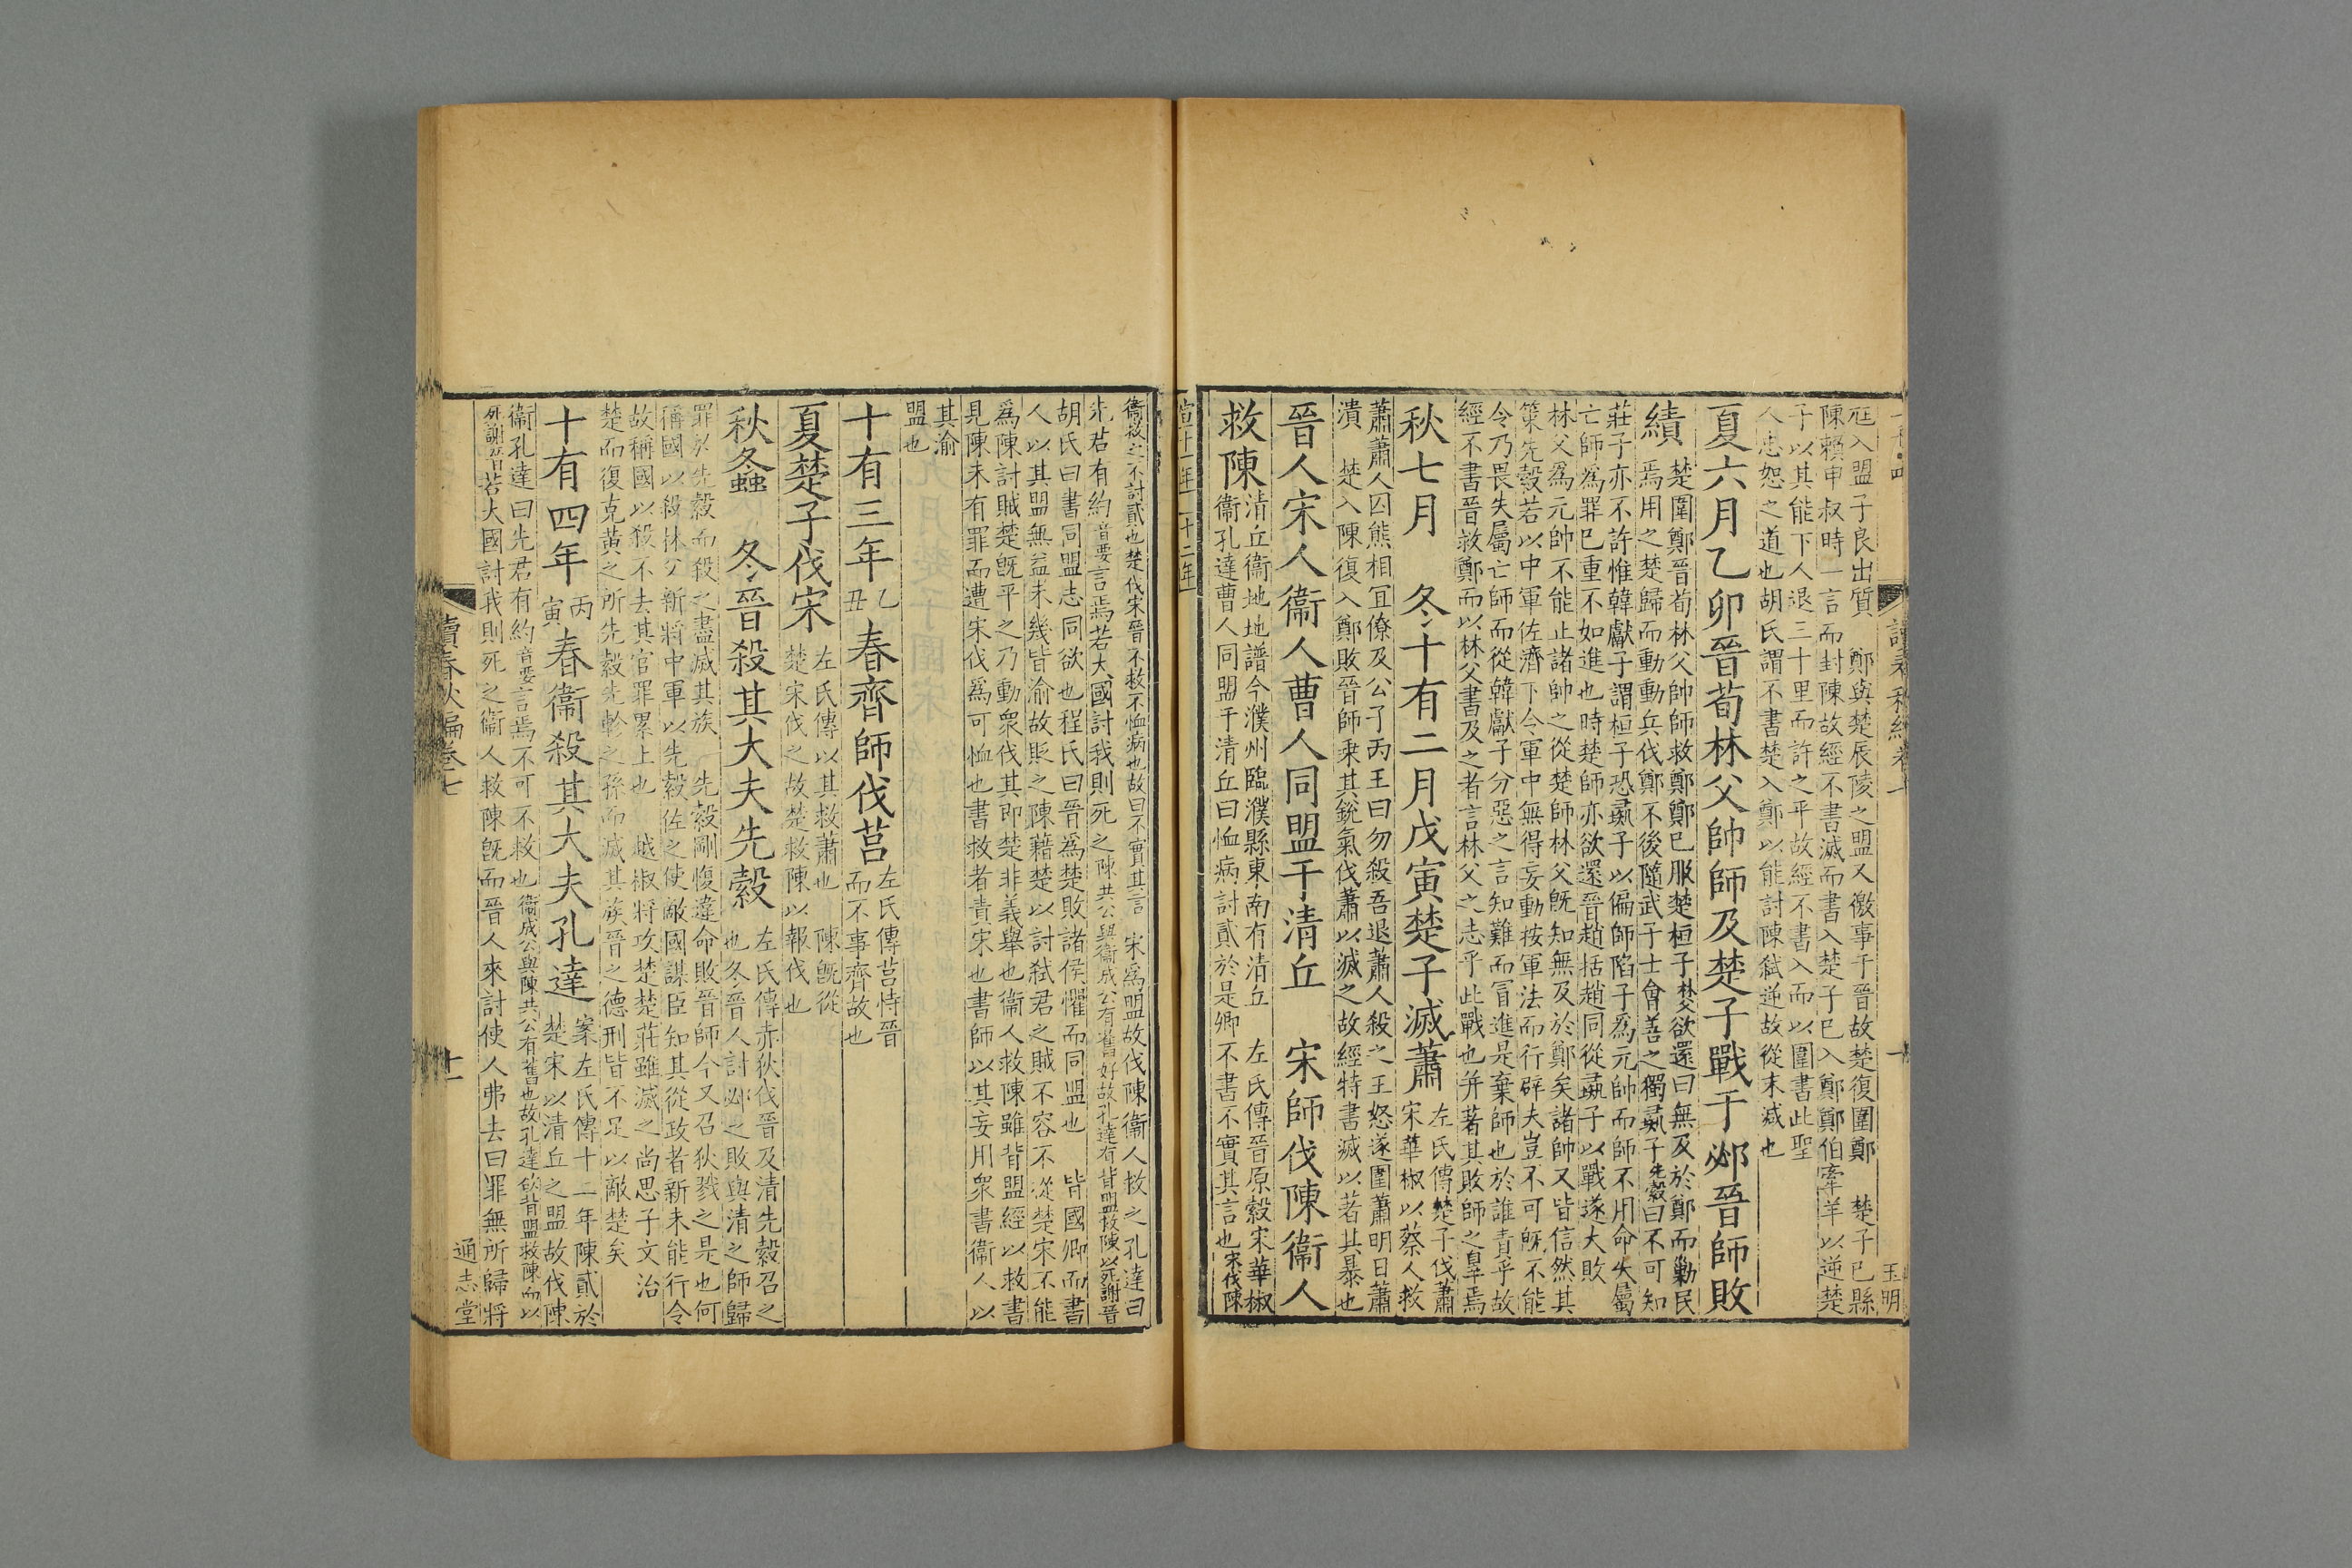 尩入盟子良出質　鄭與楚辰陵之盟又徼事于晉故楚復圍鄭　楚子巳縣
陳賴申叔時一言而封陳故經不書滅而書入楚子巳入鄭鄭伯牽羊以逆楚
子以其能下人退三十里而許之平故經不書入而以圍書此聖
人忠恕之道也胡氏謂不書楚入鄭以能討陳弑逆故從末減也
夏六月乙卯晉荀林父帥師及楚子戰于邲晉師敗
績
楚圍鄭晉荀林父帥師救鄭鄭巳服楚桓子林父欲還曰無及於鄭而勦民
焉用之楚歸而動動兵伐鄭不後隨武子士會善之獨彘子先縠曰不可知
莊子亦不許惟韓獻子謂桓子恐彘子以偏師陷子爲元帥而師不用命失屬
亡師爲罪巳重不如進也時楚師亦欲還晉趙括趙同從彘子以戰遂大敗
林父爲元帥不能止諸帥之從楚師林父旣知無及於鄭矣諸帥又皆信然其
策先縠若以中軍佐濟下令軍中無得妄動按軍法而行辟夫豈不可旣不能
令乃畏失屬亡師而從韓獻子分惡之言知難而冒進是棄師也於誰責乎故
經不書晉救鄭而以林父書及之者言林父之志乎此戰也并著其敗師之辠焉
秋七月　冬十有二月戊寅楚子滅蕭
左氏傳楚子伐蕭
宋華椒以蔡人救
蕭蕭人囚熊相宜僚及公子丙王曰勿殺吾退蕭人殺之王怒遂圍蕭明日蕭
潰　楚入陳復入鄭敗晉師乘其銳氣伐蕭以滅之故經特書滅以著其暴也
晉人宋人衞人曹人同盟于清丘　宋師伐陳衞人
救陳
清丘衞地地譜今濮州臨濮縣東南有清丘　左氏傳晉原縠宋華椒
衞孔達曹人同盟于清丘曰恤病討貳於是卿不書不實其言也宋伐陳
宣十一年　十二年
衞救之不討貳也楚伐宋晉不救不恤病也故曰不實其言　宋爲盟故伐陳衞人救之孔達曰
先君有約音要言焉若大國討我則死之陳共公與衞成公有舊好故孔達有背盟救陳以死謝晉
胡氏曰書同盟志同欲也程氏曰晉爲楚敗諸侯懼而同盟也　皆國卿而書
人以其盟無益未幾皆渝故貶之陳藉楚以討弑君之賊不容不從楚宋不能
爲陳討賊楚旣平之乃動衆伐其即楚非義舉也衞人救陳雖背盟經以救書
見陳未有罪而遭宋伐爲可恤也書救者責宋也書師以其妄用衆書衞人以
其渝
盟也
十有三年
乙
丑
春齊師伐莒
左氏傳莒恃晉
而不事齊故也
夏楚子伐宋
左氏傳以其救蕭也　陳旣從
楚宋伐之故楚救陳以報伐也
秋螽　冬晉殺其大夫先縠
左氏傳赤狄伐晉及清先縠召之
也冬晉人討邲之敗與清之師歸
罪於先縠而殺之盡滅其族　先縠剛愎違命敗晉師今又召狄戮之是也何
稱國以殺林父新將中軍以先縠佐之使敵國謀臣知其從政者新未能行令
故稱國以殺不去其官罪累上也　越椒將攻楚楚莊雖滅之尚思子文治
楚而復克黃之所先縠先軫之孫而滅其族晉之德刑皆不足以敵楚矣
十有四年
丙
寅
春衞殺其大夫孔達
案左氏傳十二年陳貳於
楚宋以清丘之盟故伐陳
衞孔達曰先君有約音要言焉不可不救也衞成公與陳共公有舊也故孔達欲背盟救陳而以
死謝晉若大國討我則死之衞人救陳旣而晉人來討使人弗去曰罪無所歸將
讀春秋編卷七
十一
通志堂